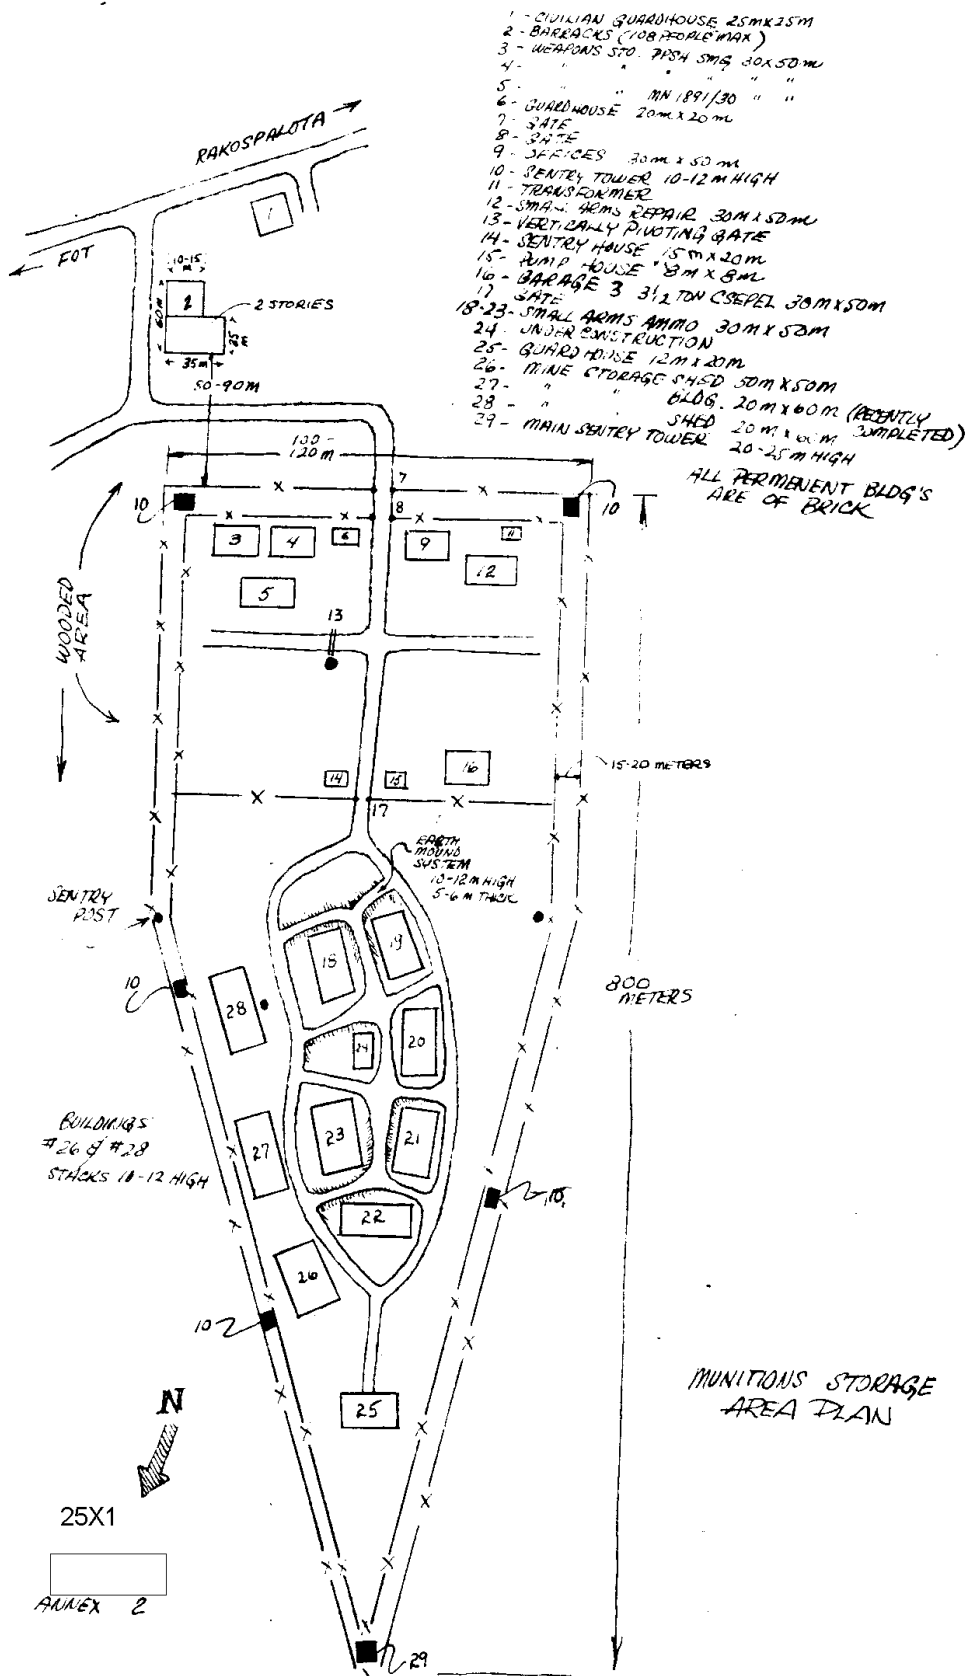 1 - CIVILIAN GUARDHOUSE 25m X 25m
2 - BARRACKS (108 PEOPLE MAX)
3 - WEAPONS STO. PPSH SMG 30 X 50 m
4 - " " " " " "
5 - " " MN 1891/30 " "
6 - GUARDHOUSE 20m X 20m
7 - GATE
8 - GATE
9 - OFFICES 30m X 50 m
10 - SENTRY TOWER 10-12 M HIGH
11 - TRANSFORMER
12 - SMALL ARMS REPAIR 30M X 50m
13 - VERTICALLY PIVOTING GATE
14 - SENTRY HOUSE 15 m X 20m
15 - PUMP HOUSE 8m X 8m
16 - GARAGE 3 3 1/2 TON CSEPEL 30M X 50M
17 GATE
18-23 - SMALL ARMS AMMO 30M X 50M
24 - UNDER CONSTRUCTION
25 - GUARD HOUSE 12M X 20M
26 - MINE STORAGE SHED 50M X 50M
27 - " " BLDG. 20 M X 60 M (RECENTLY COMPLETED)
28 - " " SHED 20 M X 60 M
29 - MAIN SENTRY TOWER 20-25 M HIGH
ALL PERMENENT BLDG'S
ARE OF BRICK
RAKOSPALOTA
FOT
1
10-15
m
60m
2
2 STORIES
25
m
35m
50-90M
100 -
120 m
10
7
10
8
3
4
6
9
11
12
5
WOODED
AREA
13
14
15
16
15-20 METERS
17
EARTH
MOUND
SYSTEM
10-12 M HIGH
5-6 M THICK
SENTRY
POST
18
19
10
28
24
20
800
METERS
BUILDINGS
#26 & #28
STACKS 10-12 HIGH
27
23
21
10
22
26
10
25
MUNITIONS STORAGE
AREA PLAN
N
25X1
ANNEX 2
29